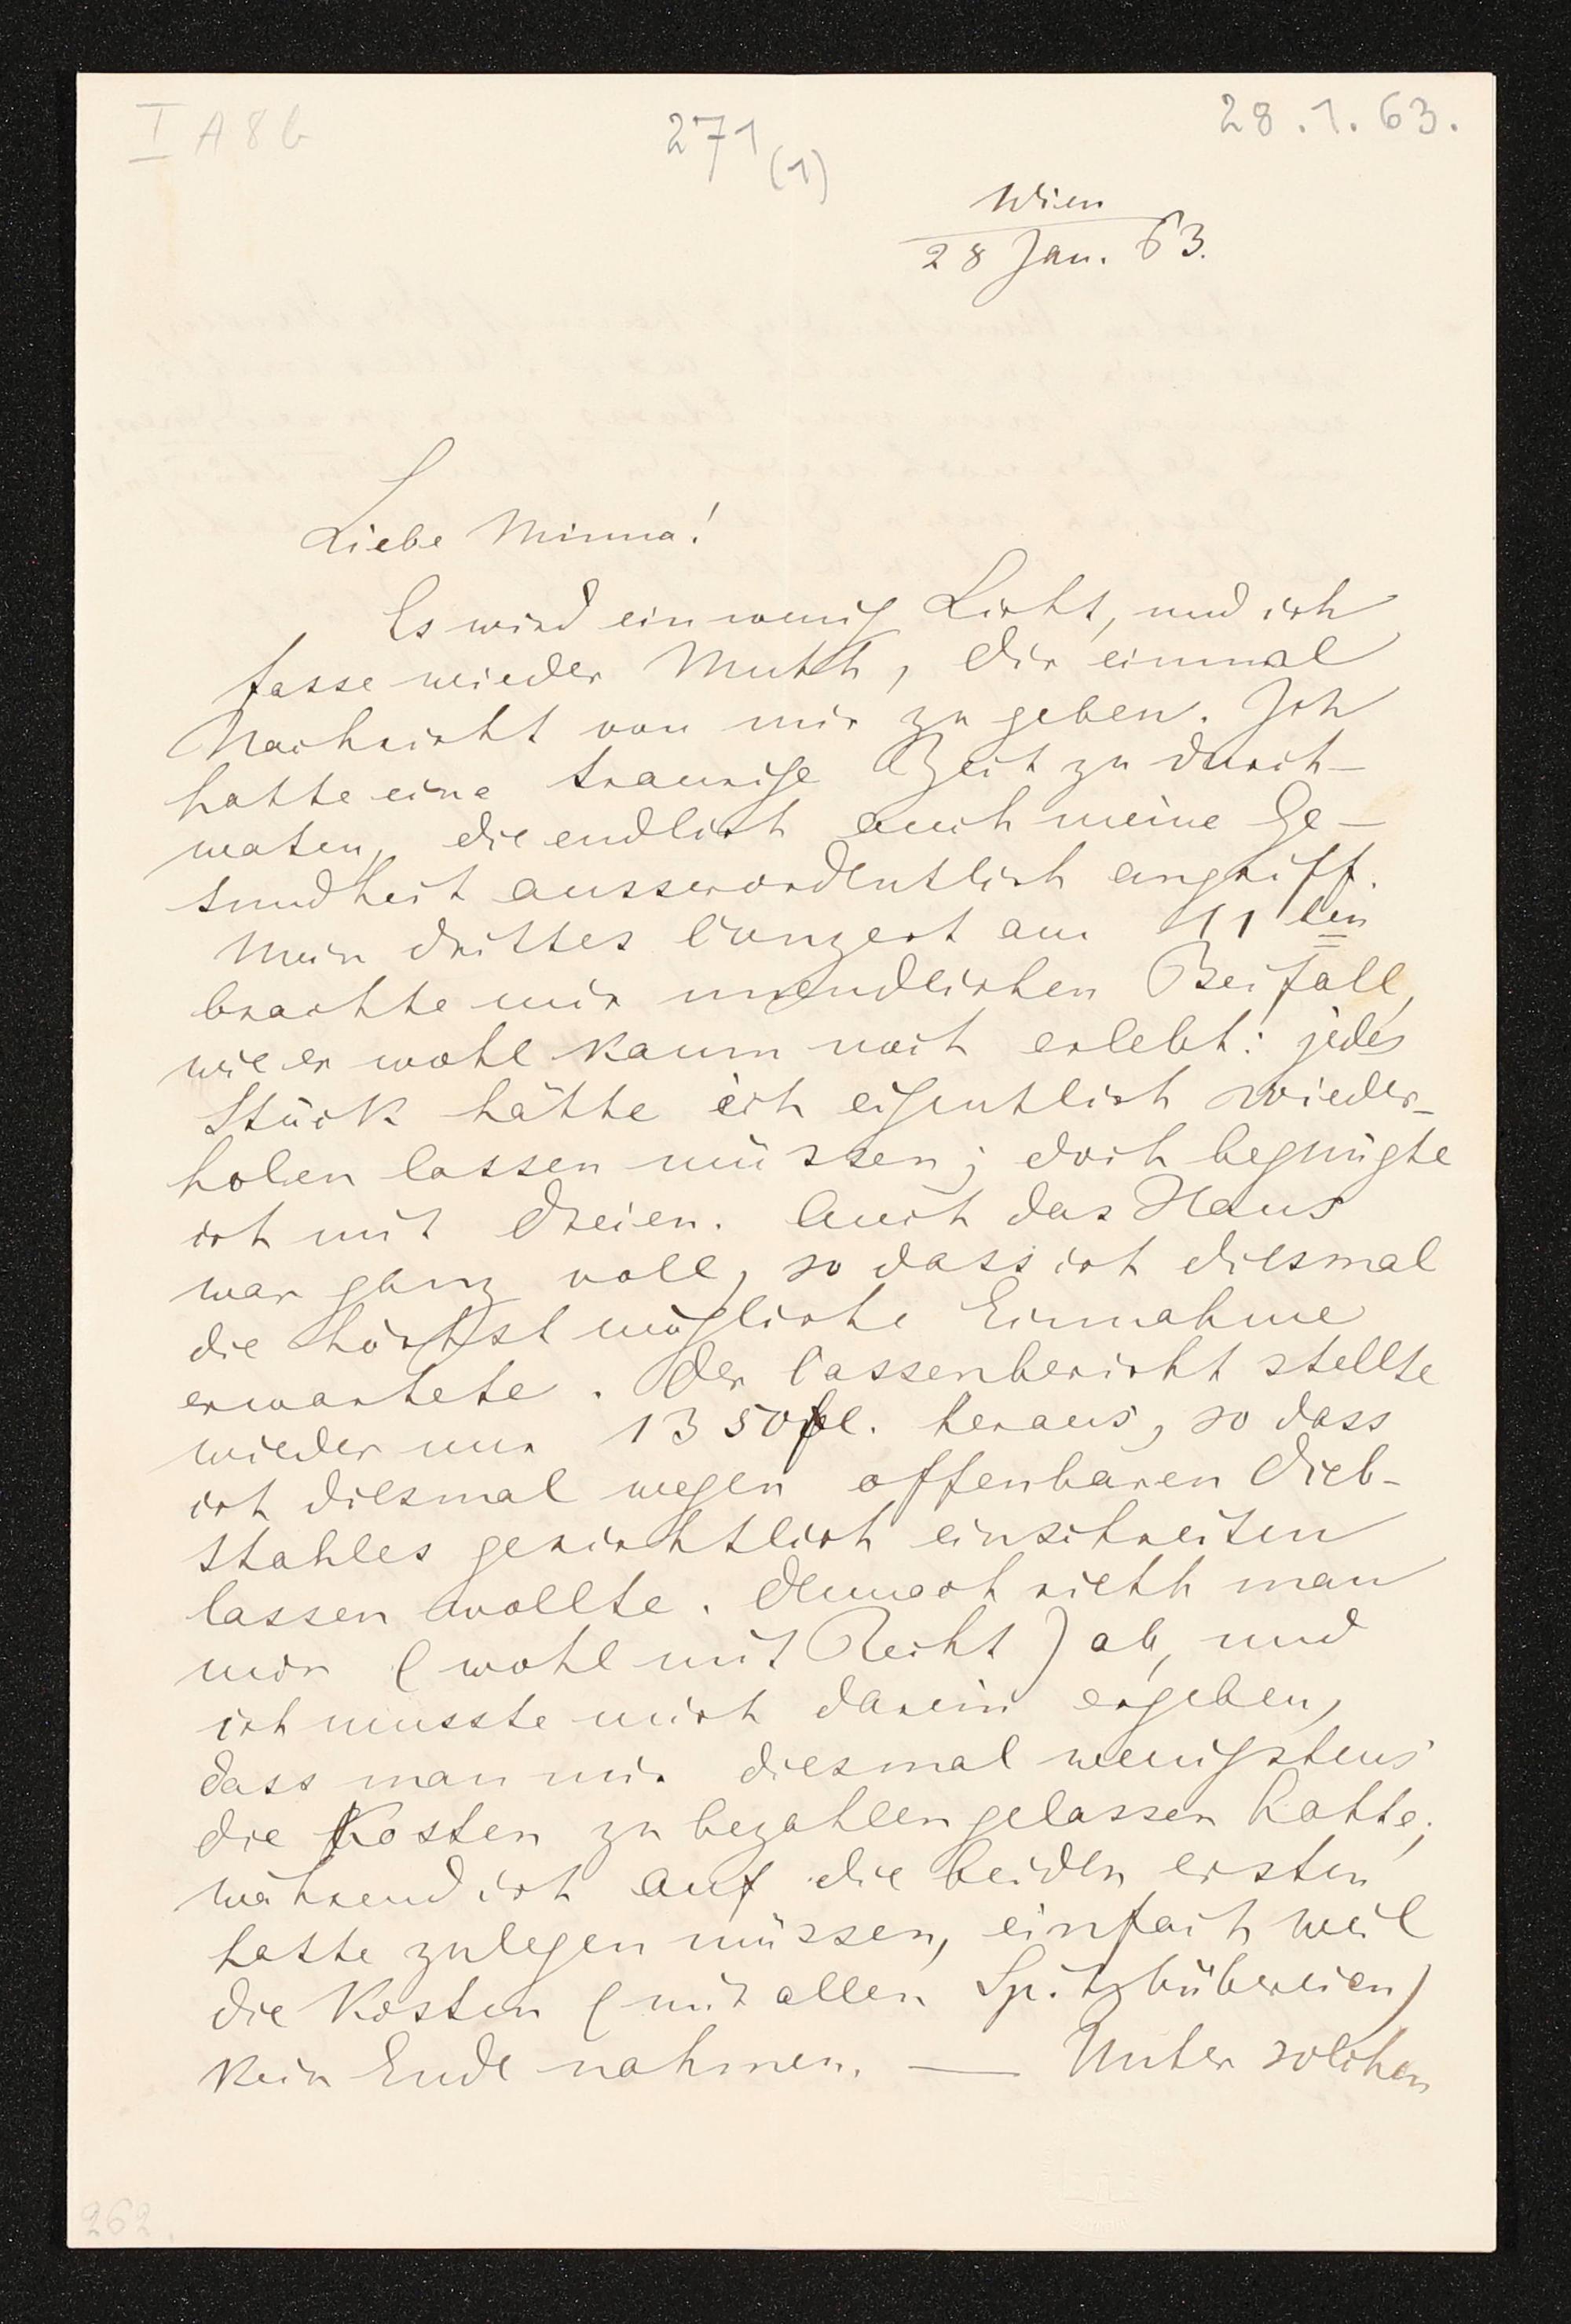 I A 8 b
271 (1)
28.1.63.
Wien
28 Jan. 63.
Liebe Minna!
Es wird ein wenig Licht, und ich
fasse wieder Muth, Dir einmal
Nachricht von mir zu geben. Ich
hatte eine traurige Zeit zu durch-
waten, die endlich auch meine Ge-
sundheit ausserordentlich angriff.
Mein drittes Conzert am 11ten
brachte mir unendlichen Beifall,
wie er wohl kaum noch erlebt: jedes
Stück hätte ich eigentlich wieder-
holen lassen müssen; doch begnügte
ich mit Dreien. Auch das Haus
war ganz voll, so dass ich diesmal
die höchst mögliche Einnahme
erwartete. Der Cassenbericht stellte
wieder nur 1350 fl. heraus, so dass
ich diesmal wegen offenbaren Dieb-
stahles gerichtlich einschreiten
lassen wollte. Dennoch rieth man
mir (wohl mit Recht) ab, und
ich musste mich darein ergeben,
dass man mir diesmal wenigstens
die Kosten zu bezahlen gelassen hatte;
während ich auf die beiden ersten
hatte zulegen müssen, einfach weil
die Kosten (mit allen Spitzbübereien)
kein Ende nahmen. — Unter solchen
262.